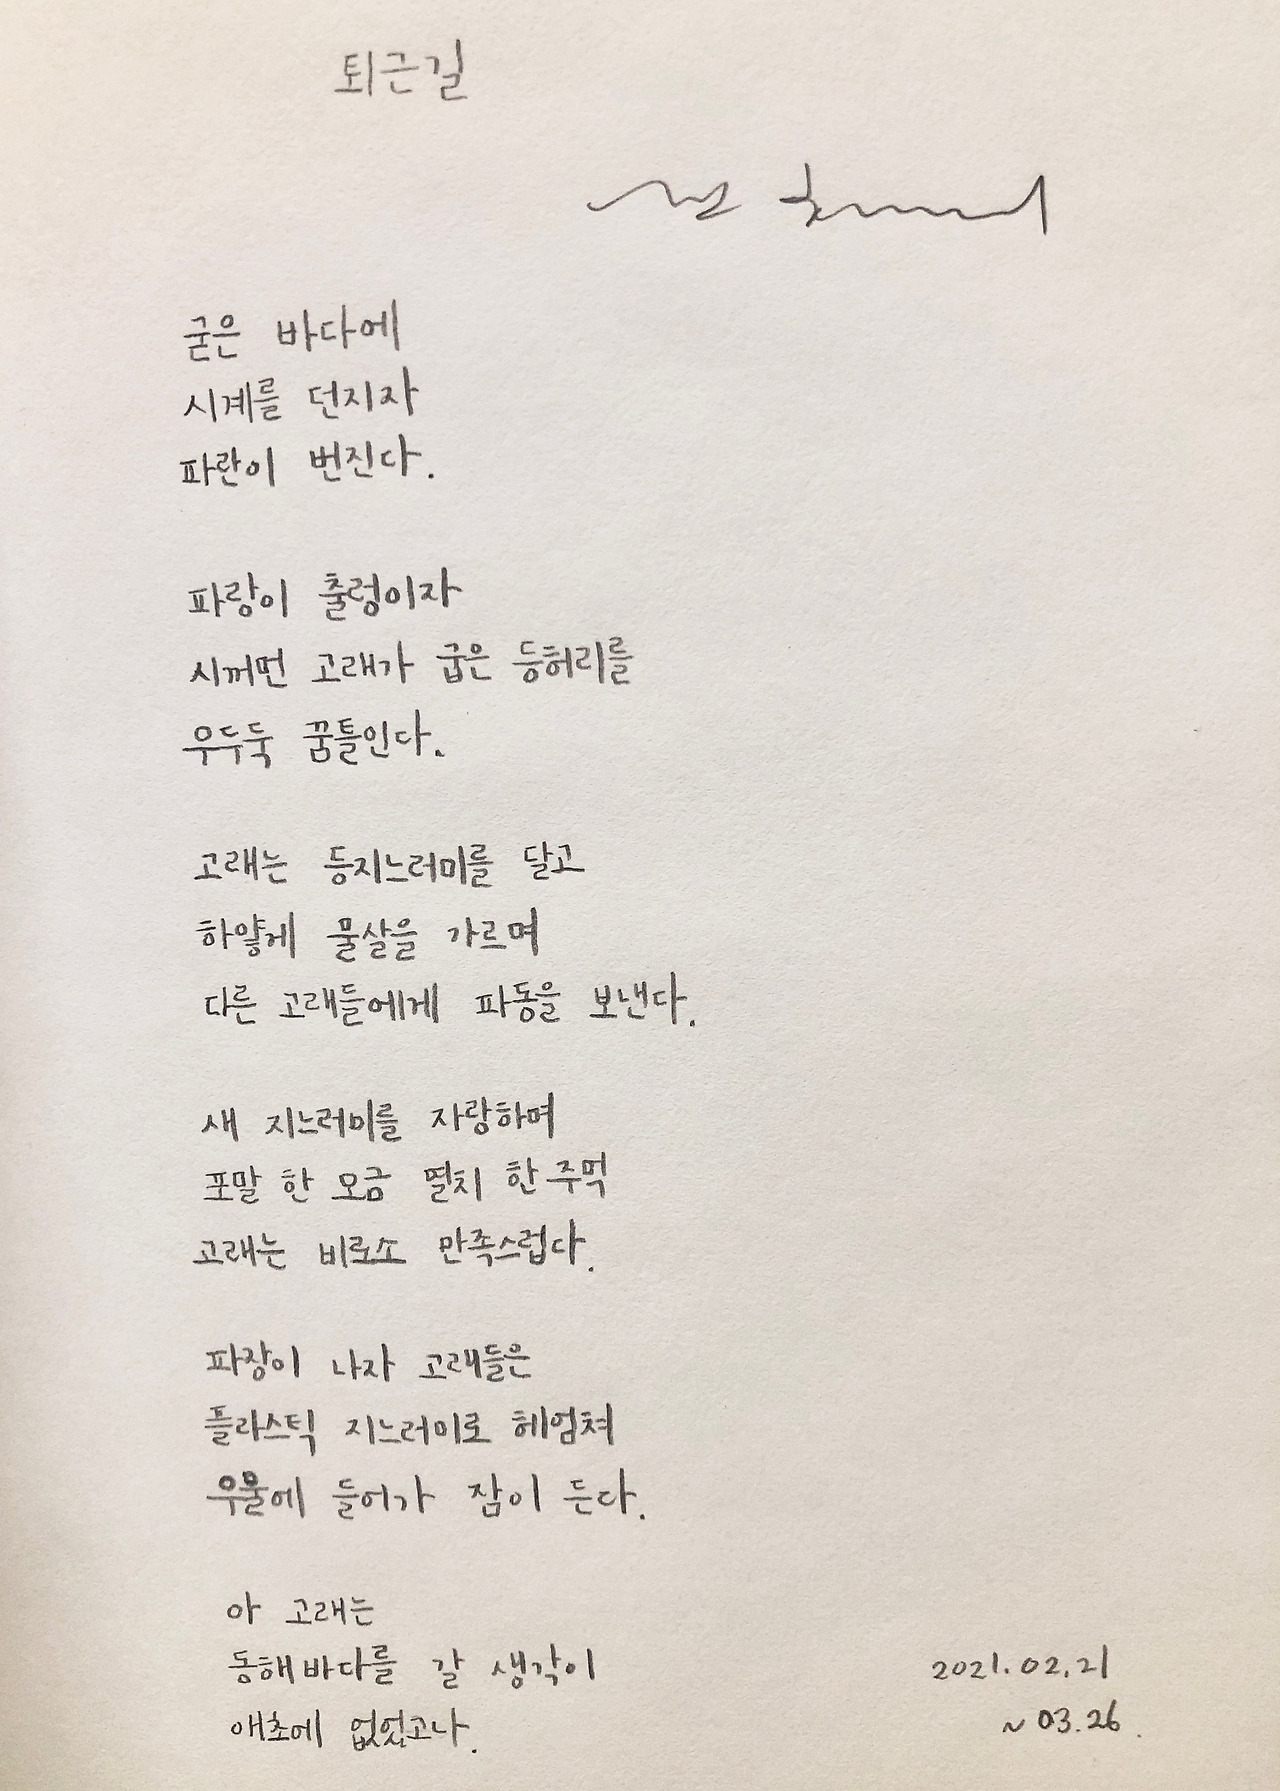 퇴근길
굳은 바다에
시계를 던지자
파란이 번진다.
파랑이 출렁이자
시꺼먼 고래가 굽은 등허리를
우두둑 꿈틀인다.
고래는 등지느러미를 달고
하얗게 물살을 가르며
다른 고래들에게 파동을 보낸다.
새 지느러미를 자랑하며
포말 한 모금 멸치 한 주먹
고래는 비로소 만족스럽다.
파장이 나자 고래들은
플라스틱 지느러미로 헤엄쳐
우울에 들어가 잠이 든다.
아 고래는
동해바다를 갈 생각이
애초에 없었고나.
2021.02.21
~ 03.26.